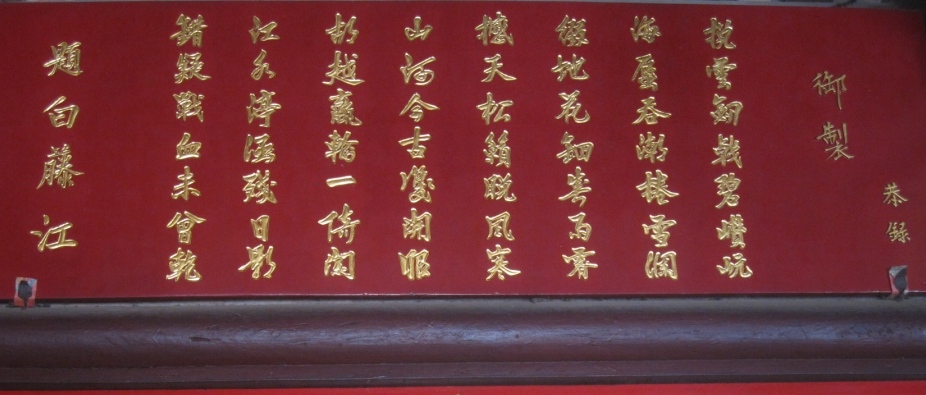 恭錄
御製
挽雲釼戟碧巑岏
海蜃吞潮捲雪瀾
綴地花鈿春雨霽
撼天松籟晚風寒
山河今古雙開眼
胡越贏輸一倚闌
江水渟涵殘日影
錯疑戰血未曾乾
題白藤江